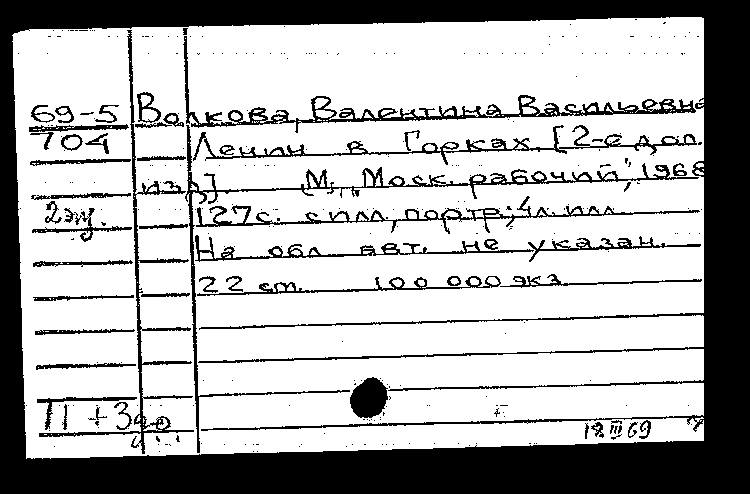 69-5 Волкова, Валентина Васильевна
704 Ленин в Горках. [2-е доп.
изд]. М., „Моск. рабочий", 1968
2 экз. 127с. с илл., портр.; 4л. илл.
На обл. авт. не указан.
22 cm. 100 000 экз.
11 + 3
18 III 69